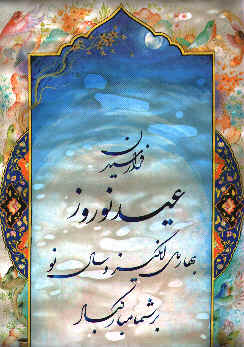 فرارسیدن
عید نوروز
بهار دل انگیز و سال نو
بر شما مبارکباد